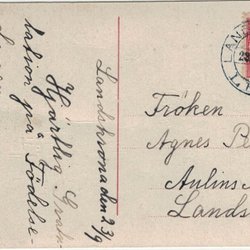 Landskrona den 23/9
Hjärtlig Gratu-
lation på
Födelse-
Fröken
Agnes Pe
Aulins
Lands
LAN